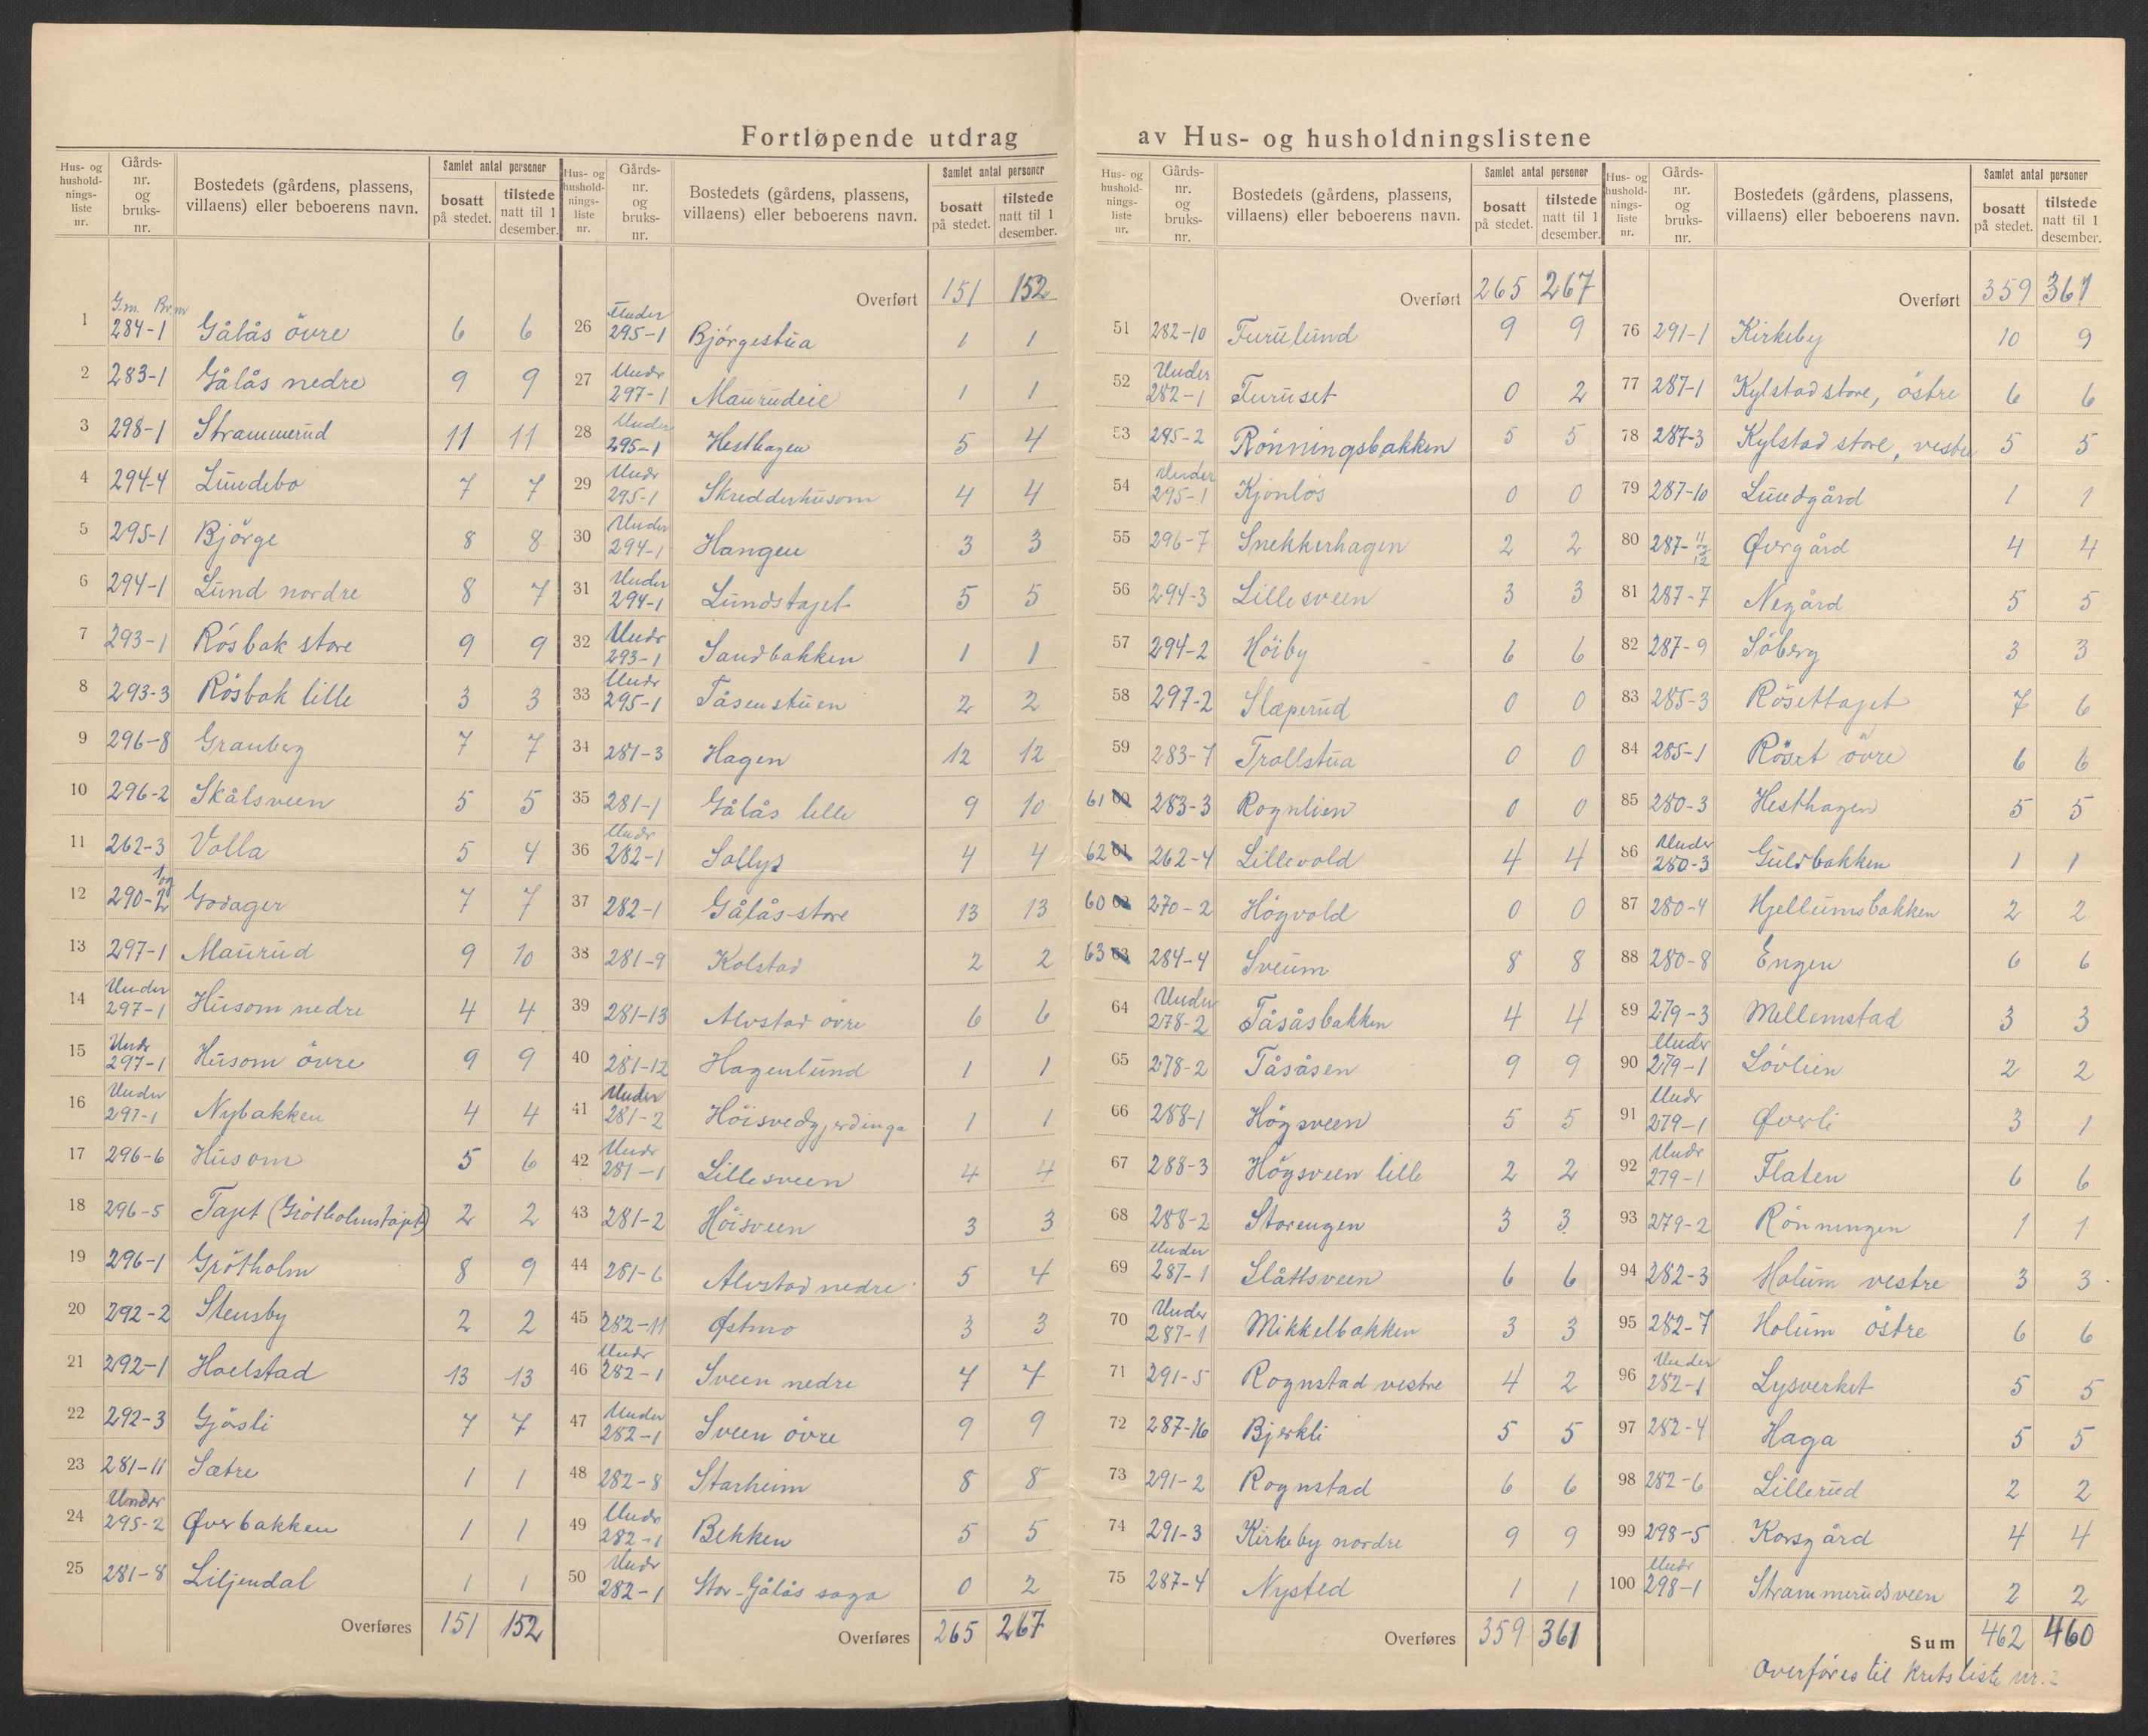 Fortløpende utdrag av Hus- og husholdningslistene
Hus- og husholdnings-liste nr. | Gårds-nr. og bruks-nr. | Bostedets (gårdens, plassens, villaens) eller beboerens navn. | Samlet antal personer bosatt på stedet. | tilstede natt til 1 desember.
G.nr. Br.nr
1 284-1 Gålås övre 6 6
2 283-1 Gålås nedre 9 9
3 298-1 Strammerud 11 11
4 294-4 Lundebo 7 7
5 295-1 Bjørge 8 8
6 294-1 Lund nordre 8 7
7 293-1 Rösbak store 9 9
8 293-3 Rösbak lille 3 3
9 296-8 Granberg 7 7
10 296-2 Skålsveen 5 5
11 262-3 Volla 5 4
12 290-1 og 2 Godager 7 7
13 297-1 Maurud 9 10
14 Under 297-1 Husom nedre 4 4
15 Under 297-1 Husom övre 9 9
16 Under 297-1 Nybakken 4 4
17 296-6 Husom 5 6
18 296-5 Tajet (Grötholmstajet) 2 2
19 296-1 Grötholm 8 9
20 292-2 Stensby 2 2
21 292-1 Hoelstad 13 13
22 292-3 Gjösli 7 7
23 281-11 Sætre 1 1
24 Under 295-2 Øverbakken 1 1
25 281-8 Liljendal 1 1
Overføres 151 152
Hus- og husholdnings-liste nr. | Gårds-nr. og bruks-nr. | Bostedets (gårdens, plassens, villaens) eller beboerens navn. | Samlet antal personer bosatt på stedet. | tilstede natt til 1 desember.
Overført 151 152
26 Under 295-1 Bjørgestua 1 1
27 Under 297-1 Maurudeie 1 1
28 Under 295-1 Hesthagen 5 4
29 Under 295-1 Skredderhusom 4 4
30 Under 294-1 Hangen 3 3
31 Under 294-1 Lundstajet 5 5
32 Under 293-1 Sandbakken 1 1
33 Under 295-1 Tåsenstuen 2 2
34 281-3 Hagen 12 12
35 281-1 Gålås lille 9 10
36 Under 282-1 Sollys 4 4
37 282-1 Gålås-store 13 13
38 281-9 Kolstad 2 2
39 281-13 Alvstad övre 6 6
40 281-12 Hagenlund 1 1
41 Under 281-2 Höisvedgjerdinga 1 1
42 Under 281-1 Lillesveen 4 4
43 281-2 Höisveen 3 3
44 281-6 Alvstad nedre 5 4
45 282-11 Østmo 3 3
46 Under 282-1 Sveen nedre 7 7
47 Under 282-1 Sveen övre 9 9
48 282-8 Starheim 8 8
49 Under 282-1 Bekken 5 5
50 Under 282-1 Stor-Gålås saga 0 2
Overføres 265 267
Hus- og husholdnings-liste nr. | Gårds-nr. og bruks-nr. | Bostedets (gårdens, plassens, villaens) eller beboerens navn. | Samlet antal personer bosatt på stedet. | tilstede natt til 1 desember.
Overført 265 267
51 282-10 Furulund 9 9
52 Under 282-1 Furuset 0 2
53 295-2 Rönningsbakken 5 5
54 Under 295-1 Kjönlös 0 0
55 296-7 Snekkerhagen 2 2
56 294-3 Lillesveen 3 3
57 294-2 Höiby 6 6
58 297-2 Slæperud 0 0
59 283-7 Trollstua 0 0
61 60 283-3 Rognlien 0 0
62 61 262-4 Lillevold 4 4
60 62 270-2 Högvold 0 0
63 63 284-4 Sveum 8 8
64 Under 278-2 Tåsåsbakken 4 4
65 278-2 Tåsåsen 9 9
66 288-1 Högsveen 5 5
67 288-3 Högsveen lille 2 2
68 288-2 Storengen 3 3
69 Under 287-1 Slåttsveen 6 6
70 Under 287-1 Mikkelbakken 3 3
71 291-5 Rognstad vestre 4 2
72 287-16 Bjerkli 5 5
73 291-2 Rognstad 6 6
74 291-3 Kirkeby nordre 9 9
75 287-4 Nysted 1 1
Overføres 359 361
Hus- og husholdnings-liste nr. | Gårds-nr. og bruks-nr. | Bostedets (gårdens, plassens, villaens) eller beboerens navn. | Samlet antal personer bosatt på stedet. | tilstede natt til 1 desember.
Overført 359 361
76 291-1 Kirkeby 10 9
77 287-1 Kylstad store, östre 6 6
78 287-3 Kylstad store, vestre 5 5
79 287-10 Lundgård 1 1
80 287-11/12 Øvrgård 4 4
81 287-7 Negård 5 5
82 287-9 Söberg 3 3
83 285-3 Rösettajet 7 6
84 285-1 Röset övre 6 6
85 280-3 Hesthagen 5 5
86 Under 280-3 Guldbakken 1 1
87 280-4 Hjellumsbakken 2 2
88 280-8 Engen 6 6
89 279-3 Mellemstad 3 3
90 Under 279-1 Lövlien 2 2
91 Under 279-1 Øverli 3 1
92 Under 279-1 Flaten 6 6
93 279-2 Rönningen 1 1
94 282-3 Holum vestre 3 3
95 282-7 Holum östre 6 6
96 Under 282-1 Lysverket 5 5
97 282-4 Haga 5 5
98 282-6 Lillerud 2 2
99 298-5 Korsgård 4 4
100 Under 298-1 Strammerudsveen 2 2
Sum 462 460
Overføres til kretsliste nr. 2